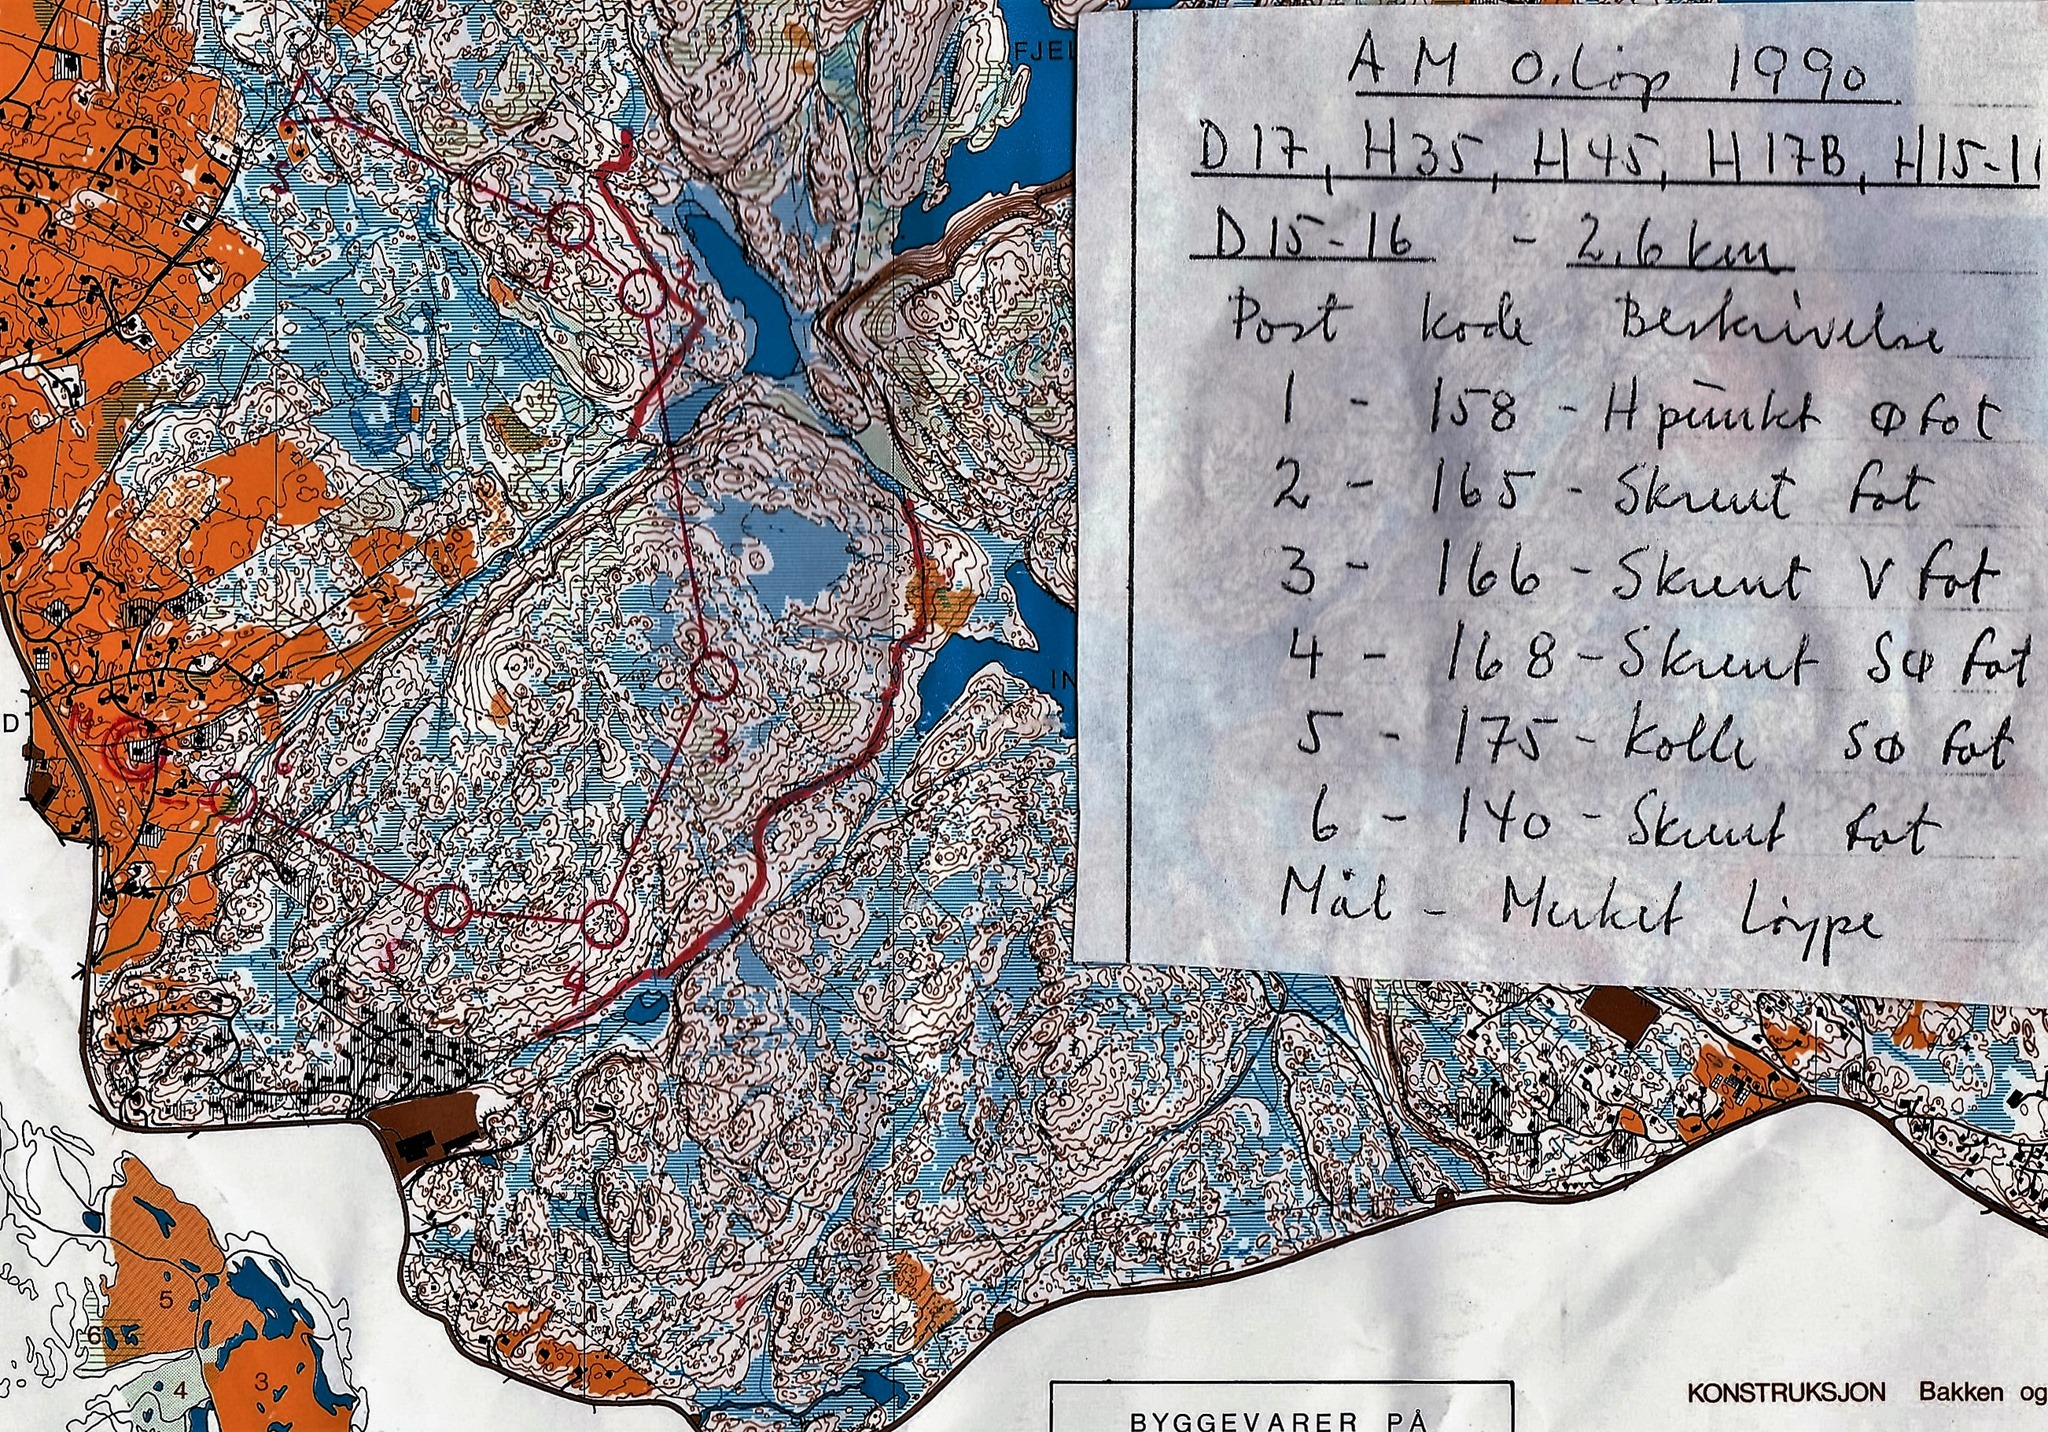 A M O.Løp 1990
D17, H35, H45, H17B, H15-1
D15-16 - 2,6 km
Post Kode Beskrivelse
1 - 158 - H punkt Ø fot
2 - 165 - Skrent fot
3 - 166 - Skrent V fot
4 - 168 - Skrent SØ fot
5 - 175 - Kolle SØ fot
6 - 140 - Skrent fot
Mål - Merket Løype
FJEL
IN
D
S
1
2
3
4
5
6
M
5
6
4
3
BYGGEVARER PÅ
KONSTRUKSJON Bakken og